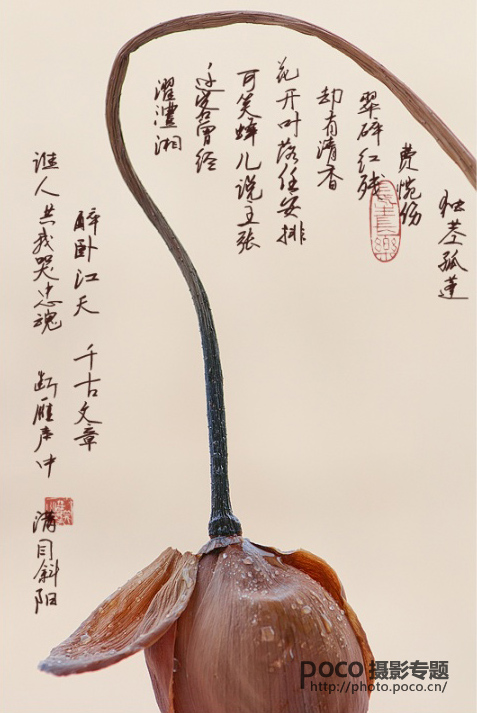 独茎孤莲
费恍伤
翠碎红残
却有清香
花开叶落任安排
可笑蝉儿说主张
迁客曾经
濯澧湘
醉卧江天 千古文章
谁人共我哭忠魂 断雁声中 满目斜阳
poco 摄影专题
http://photo.poco.cn/